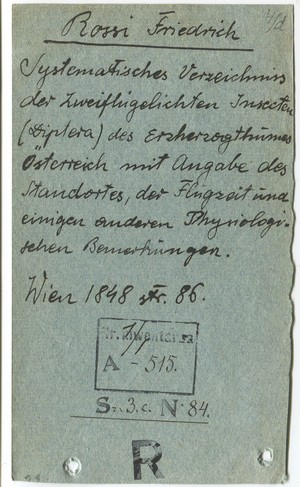 Rossi Friedrich
Systematisches Verzeichniss
der zweiflügelichten Insecten
(Diptera) des Erzherzogthumes
Österreich mit Angabe des
Standortes, der Flugzeit und
einigen anderen Physiologi-
schen Bemerkungen.
Wien 1848 str. 86.
Nr. inwentarza
A - 515.
Sz. 3. c. N 84.
R